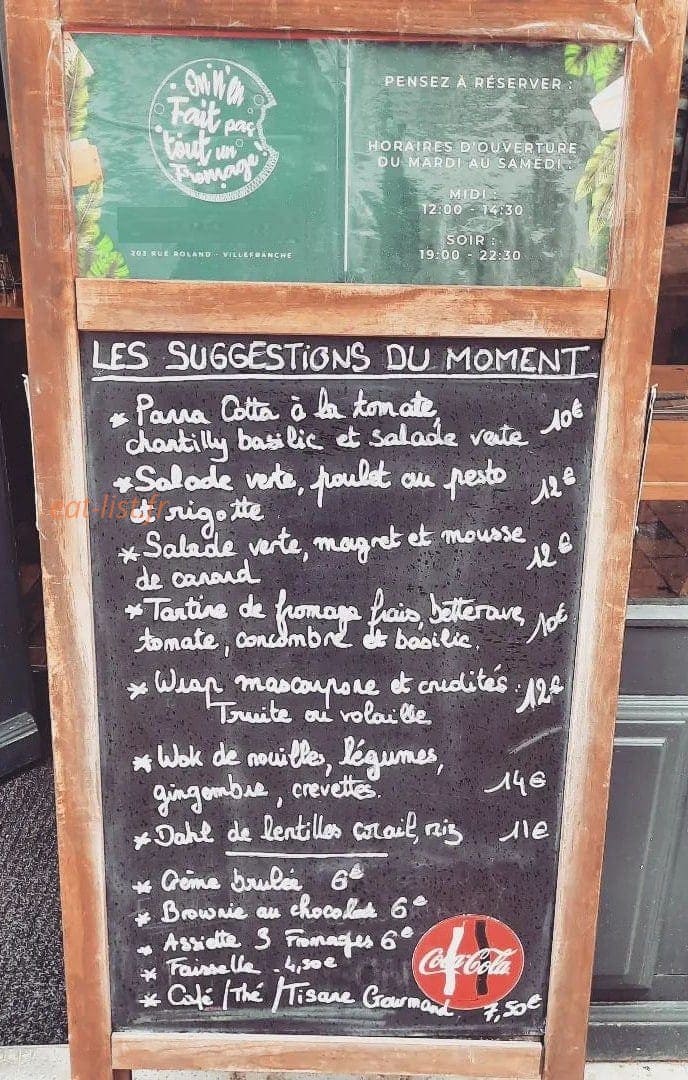 On n'en
Fait pas
tout un
Fromage!
203 RUE ROLAND - VILLEFRANCHE
PENSEZ À RÉSERVER :
HORAIRES D'OUVERTURE
DU MARDI AU SAMEDI :
MIDI :
12:00 - 14:30
SOIR :
19:00 - 22:30
LES SUGGESTIONS DU MOMENT
* Panna Cotta à la tomate,
chantilly basilic et salade verte 10€
* Salade verte, poulet au pesto
et rigotte 12€
at-list.fr
* Salade verte, magret et mousse
de canard 12€
* Tartine de fromage frais, betterave,
tomate, concombre et basilic. 10€
* Wrap mascarpone et crudités : 12€
Truite ou volaille
* Wok de nouilles, légumes,
gingembre, crevettes. 14€
* Dahl de lentilles corail, riz 11€
* Crème brulée 6€
* Brownie au chocolat 6€
* Assiette 3 Fromages 6€
* Faisselle - 4,50€
* Café / Thé / Tisane Gourmand 7,50€
Coca-Cola